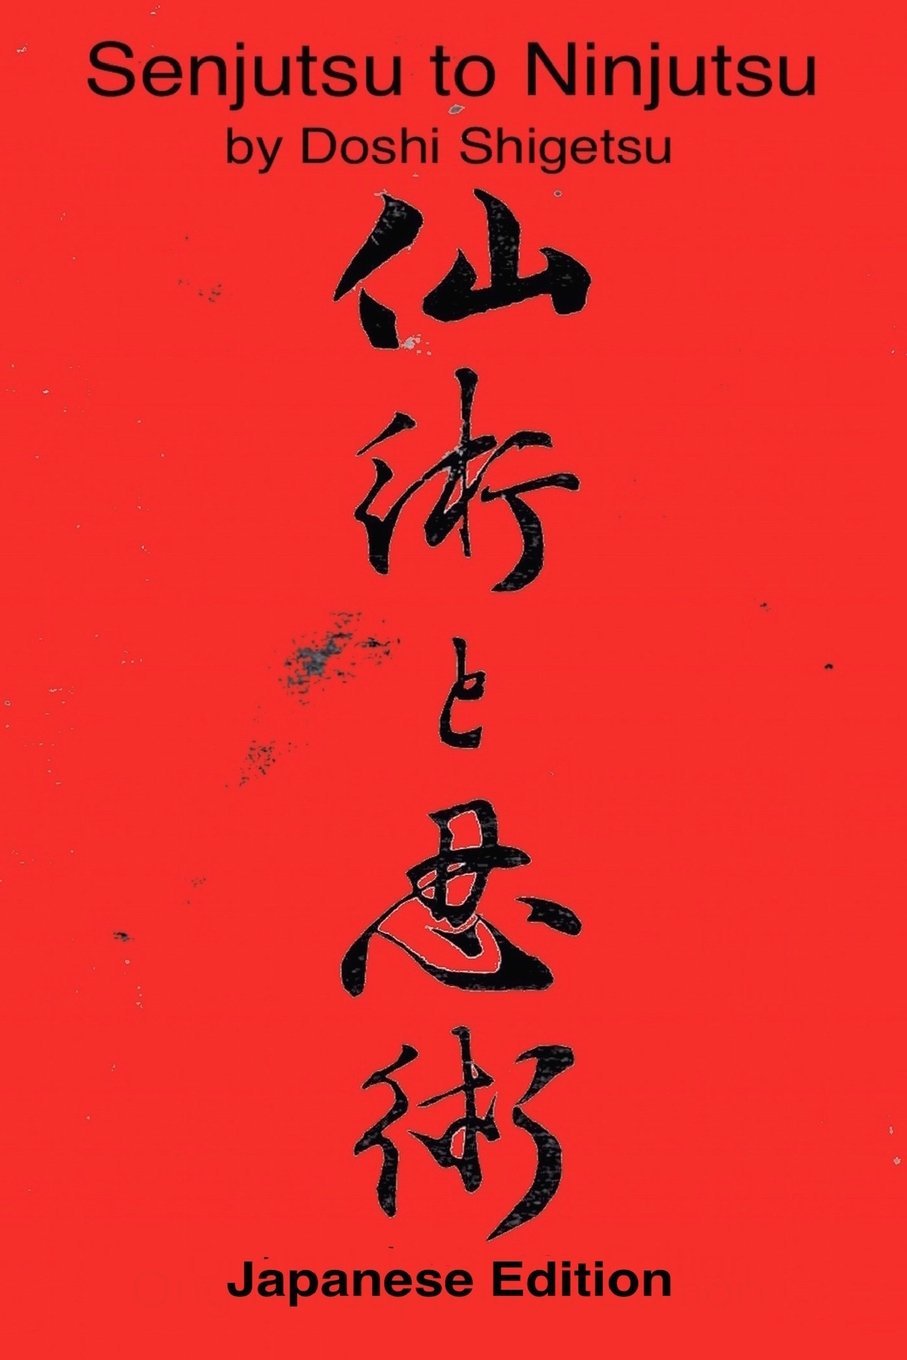 Senjutsu to Ninjutsu
by Doshi Shigetsu
仙術と忍術
Japanese Edition